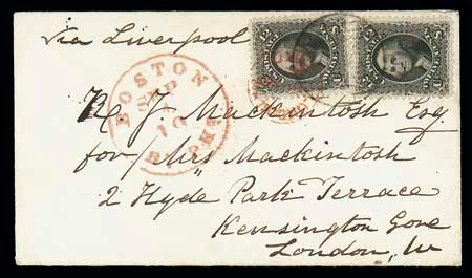 via Liverpool
12 U.S. POSTAGE 12
BOSTON
SEP
10
R. J. Mackintosh Esq.
for Mrs Mackintosh
2 Hyde Park Terrace
Kensington Gore
London, W